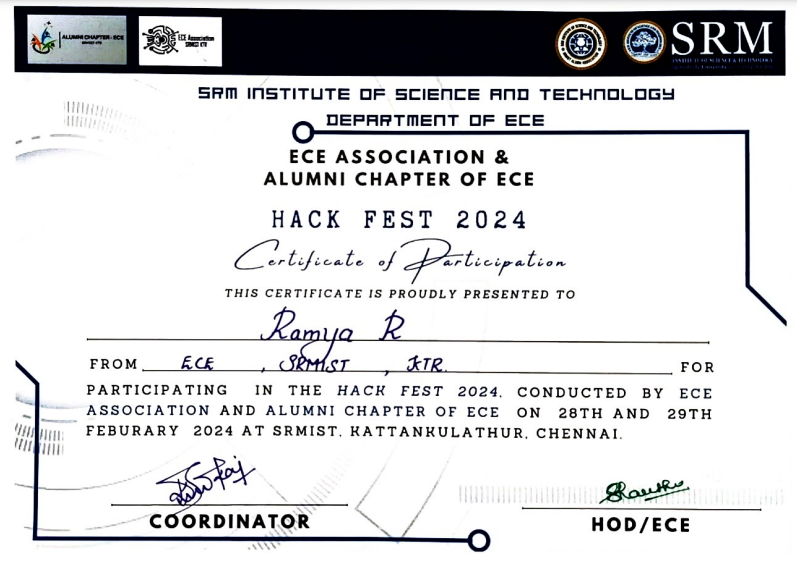 ALUMNI CHAPTER - ECE
SRMIST KTR
ECE Association
SRMIST KTR
SRM
INSTITUTE OF SCIENCE & TECHNOLOGY
SRM INSTITUTE OF SCIENCE AND TECHNOLOGY
DEPARTMENT OF ECE
ECE ASSOCIATION &
ALUMNI CHAPTER OF ECE
HACK FEST 2024
Certificate of Participation
THIS CERTIFICATE IS PROUDLY PRESENTED TO
Ramya R
FROM ECE , SRMIST , KTR. FOR
PARTICIPATING IN THE HACK FEST 2024, CONDUCTED BY ECE
ASSOCIATION AND ALUMNI CHAPTER OF ECE ON 28TH AND 29TH
FEBURARY 2024 AT SRMIST, KATTANKULATHUR, CHENNAI.
COORDINATOR
HOD/ECE